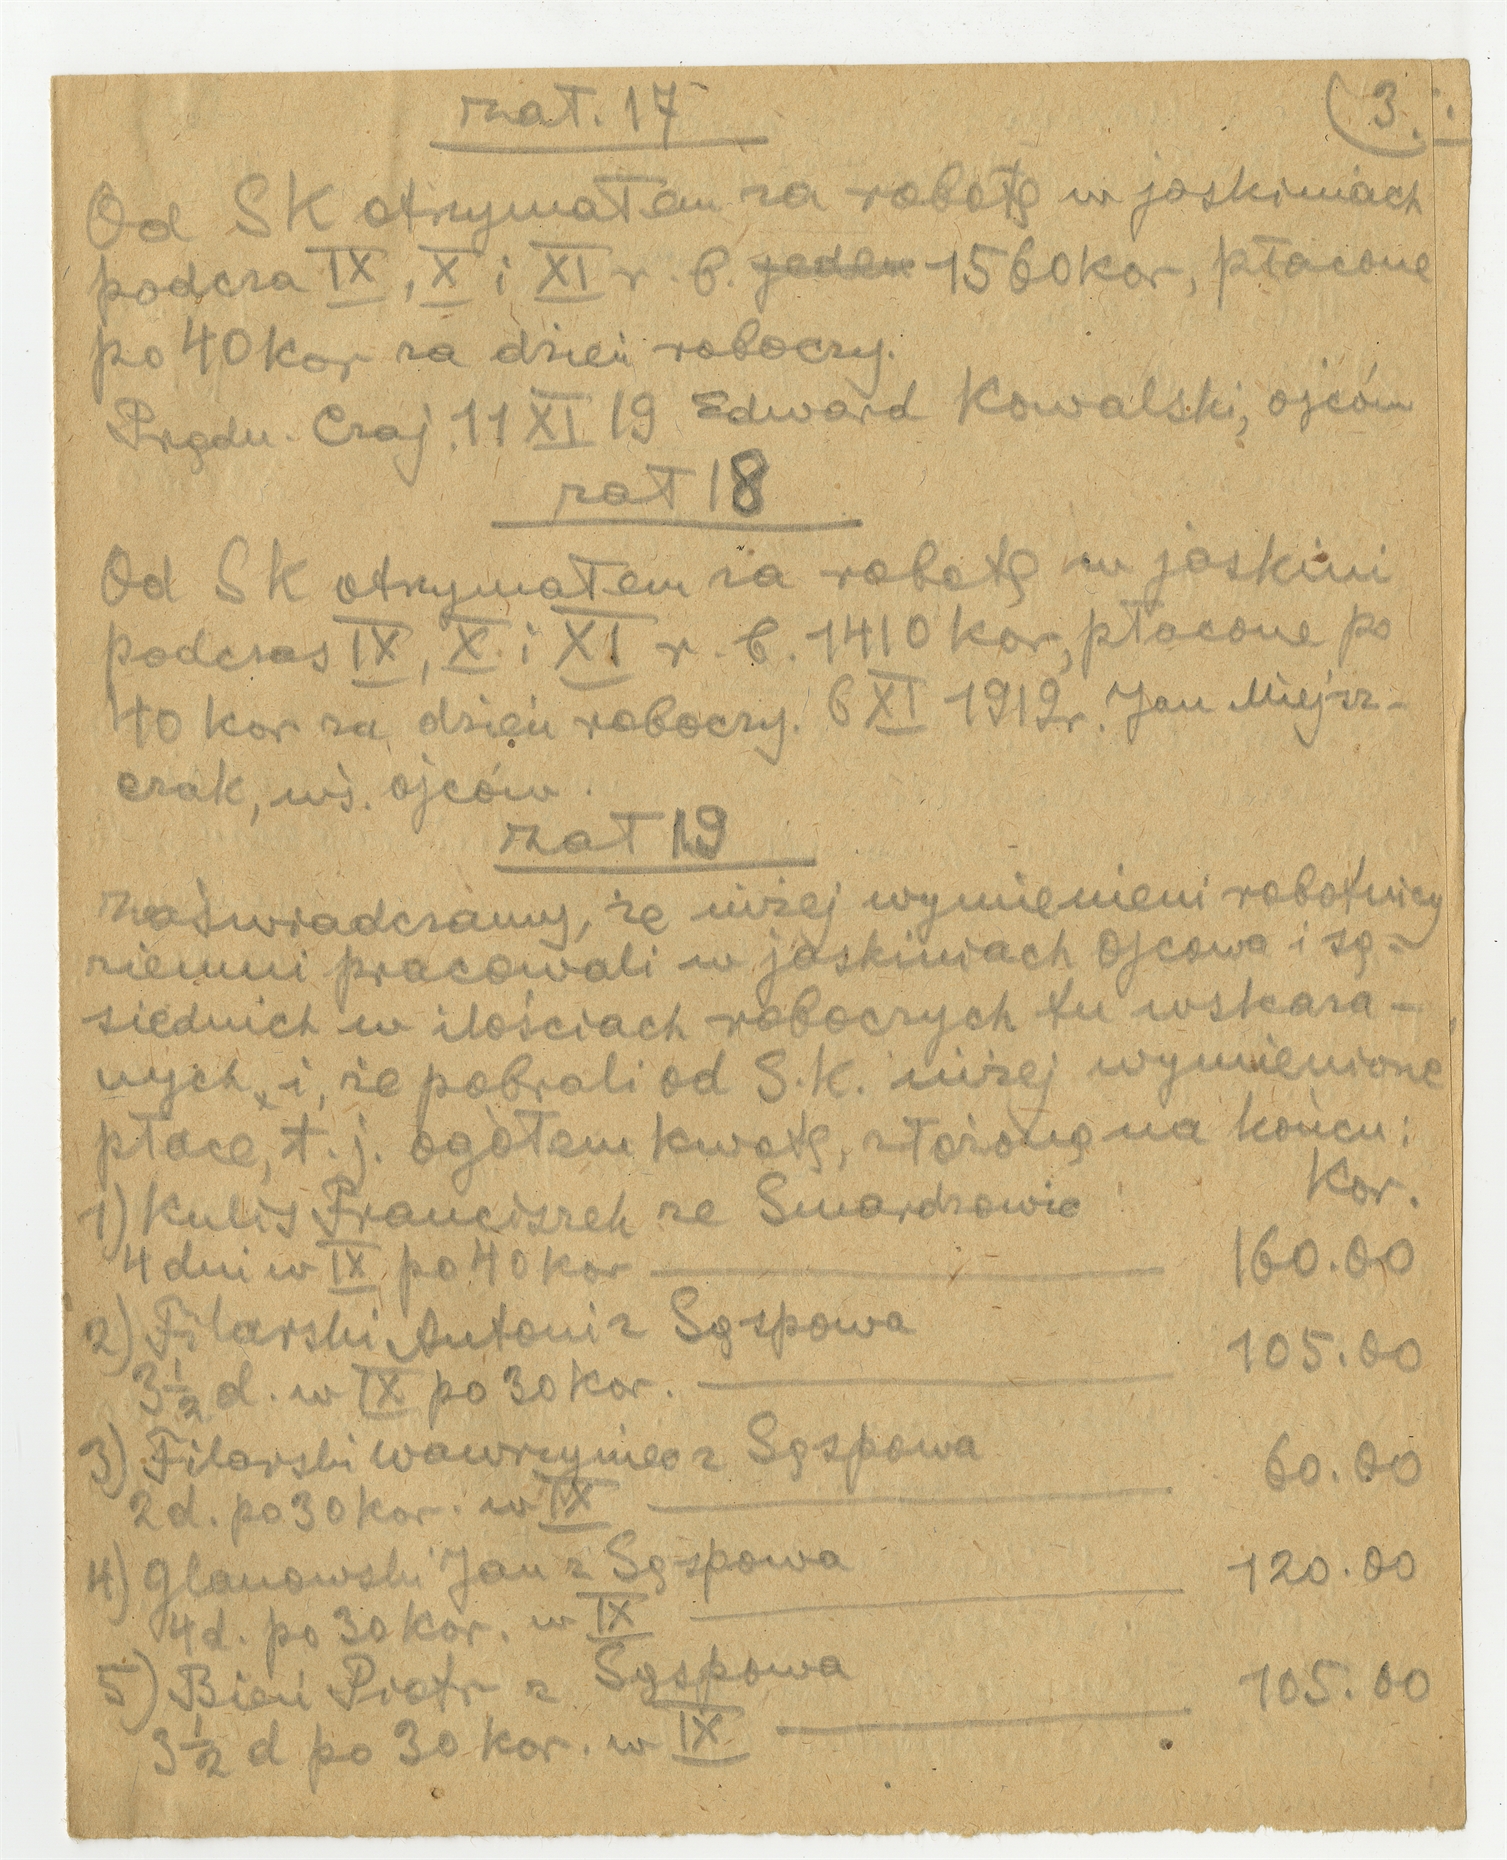 zał. 17
3.
Od SK otrzymałem za robotę w jaskiniach
podcza IX, X i XI r. b. jeden 1560 kor, płacone
po 40 kor za dzień roboczy.
Prądn. Czaj. 11 XI 19 Edward Kowalski, Ojców
zał 18
Od SK otrzymałem za robotę w jaskini
podczas IX, X i XI r. b. 1410 kor, płacone po
40 kor za dzień roboczy. 6 XI 1919 r. Jan Miejsz-
czak, wś. Ojców.
zał 19
Zaświadczamy, że niżej wymienieni robotnicy
ziemni pracowali w jaskiniach Ojcowa i są-
siednich w ilościach roboczych tu wskaza-
nych, i, że pobrali od S.K. niżej wymienione
płace, t. j. ogółem kwotę, złożoną na końcu:
Kor.
1) Kulis Franciszek ze Smardzowic
4 dni w IX po 40 kor 160.00
2) Filarski Antoni z Sąspowa
3 1/2 d. w IX po 30 kor. 105.00
3) Filarski Wawrzyniec z Sąspowa
2 d. po 30 kor. w IX 60.00
4) Glanowski Jan z Sąspowa
4 d. po 30 kor. w IX 120.00
5) Bień Piotr z Sąspowa
3 1/2 d po 30 kor. w IX 105.00